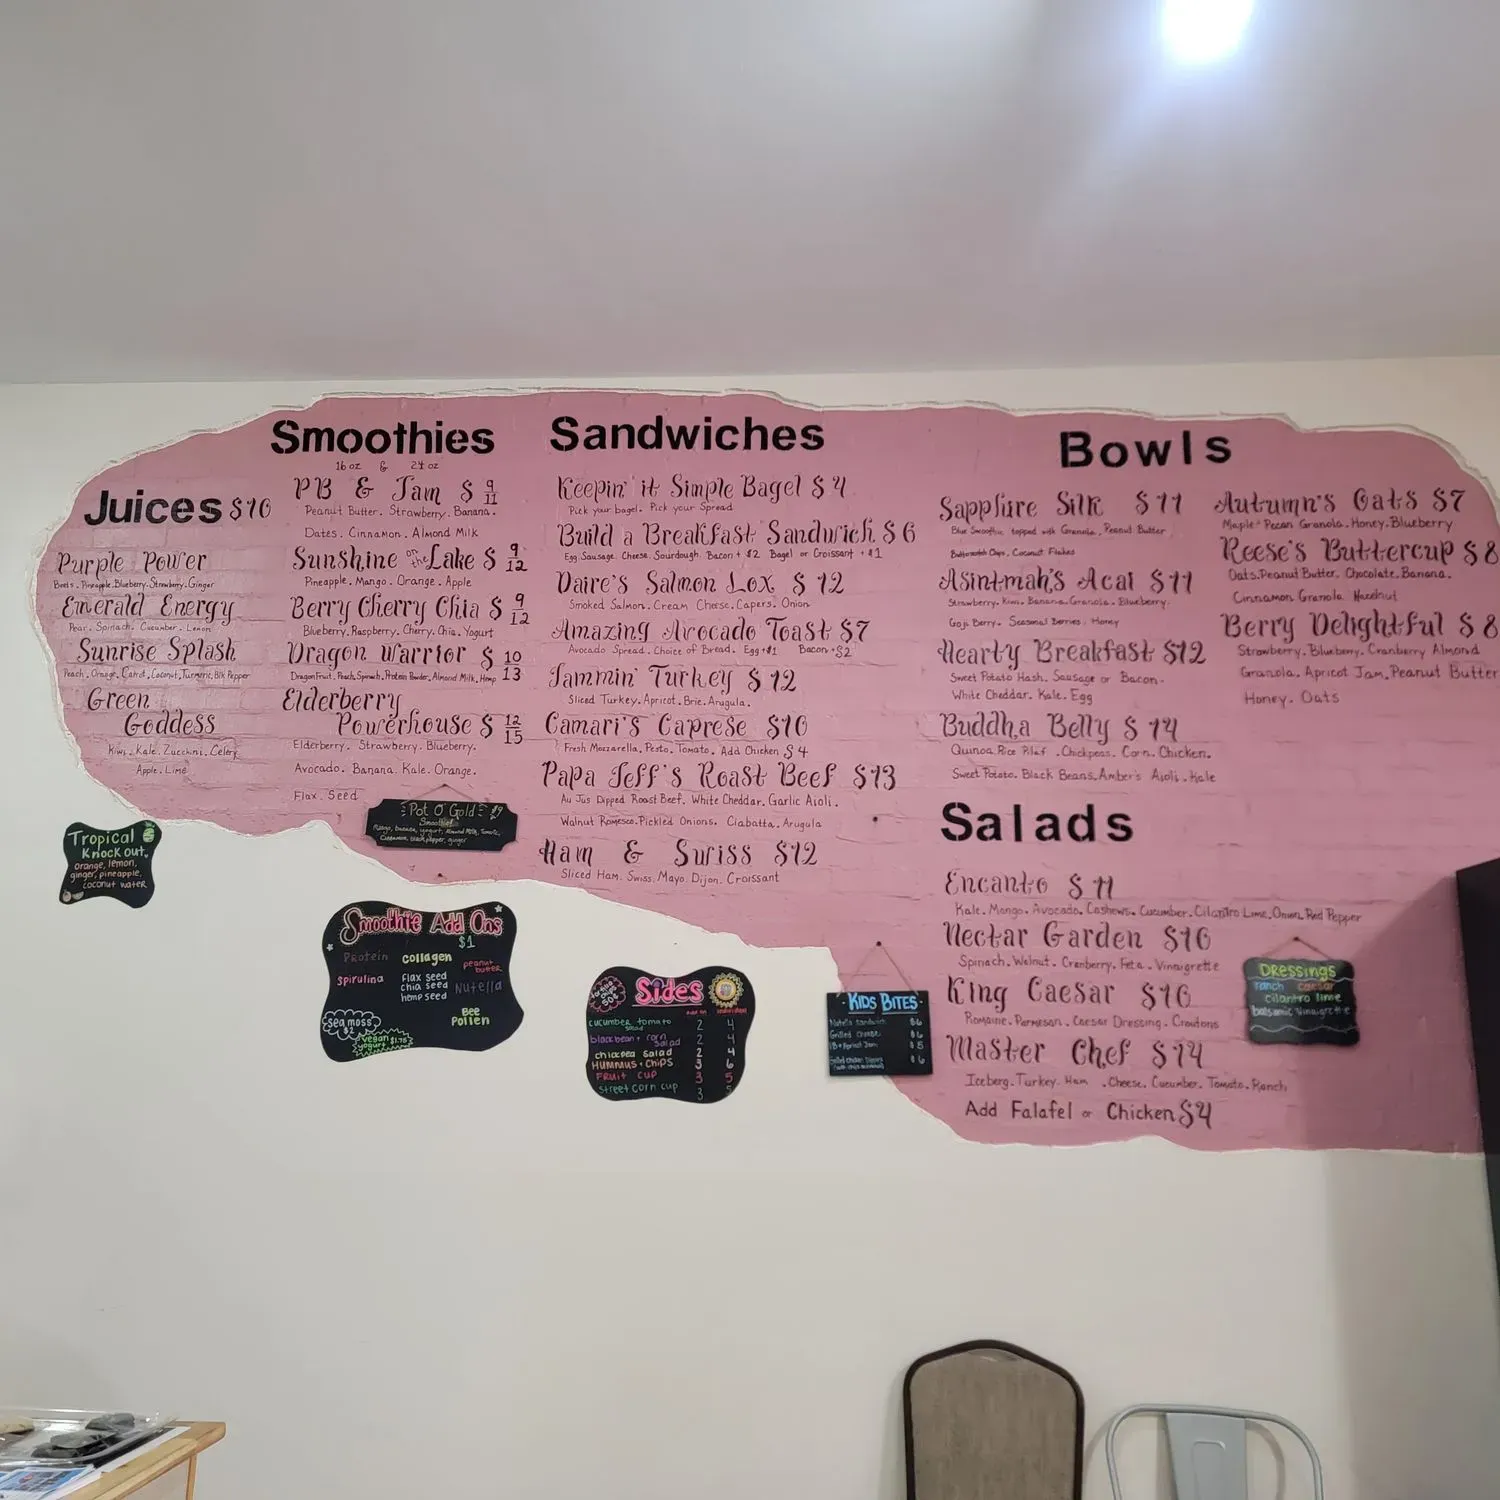 Juices $10
Purple Power
Beets. Pineapple. Blueberry. Strawberry. Ginger
Emerald Energy
Pear. Spinach. Cucumber. Lemon
Sunrise Splash
Peach. Orange. Carrot. Coconut. Turmeric. Blk Pepper
Green
Goddess
Kiwi. Kale. Zucchini. Celery.
Apple. Lime
Tropical
Knock out
orange, lemon,
ginger, pineapple,
coconut water
Smoothies
16 oz & 24 oz
PB & Jam $ 9 11
Peanut Butter. Strawberry. Banana.
Dates. Cinnamon. Almond Milk
Sunshine on the Lake $ 9 12
Pineapple. Mango. Orange. Apple
Berry Cherry Chia $ 9 12
Blueberry. Raspberry. Cherry. Chia. Yogurt
Dragon Warrior $ 10 13
Dragon Fruit. Peach. Spinach. Protein Powder. Almond Milk. Hemp
Elderberry
Powerhouse $ 12 15
Elderberry. Strawberry. Blueberry.
Avocado. Banana. Kale. Orange.
Flax. Seed
Pot O' Gold $9
Smoothie!
Mango, banana, yogurt, Almond Milk, Tumeric,
Cinnamon, black pepper, ginger
Smoothie Add Ons
$1
Protein collagen peanut butter
spirulina flax seed
chia seed Nutella
hemp seed
Sea moss $2
Bee Pollen
vegan yogurt $1.75
Sandwiches
Keepin' it Simple Bagel $4
Pick your bagel. Pick your Spread
Build a Breakfast Sandwich $6
Egg. Sausage. Cheese. Sourdough. Bacon + $2 Bagel or Croissant + $1
Daire's Salmon Lox $12
Smoked Salmon. Cream Cheese. Capers. Onion
Amazing Avocado Toast $7
Avocado Spread. Choice of Bread. Egg +$1 Bacon +$2
Jammin' Turkey $12
Sliced Turkey. Apricot. Brie. Arugula.
Camari's Caprese $10
Fresh Mozzarella. Pesto. Tomato. Add Chicken $4
Papa Jeff's Roast Beef $13
Au Jus Dipped Roast Beef. White Cheddar. Garlic Aioli.
Walnut Romesco. Pickled Onions. Ciabatta. Arugula
Ham & Swiss $12
Sliced Ham. Swiss. Mayo. Dijon. Croissant
Sides
cucumber tomato salad 2 4
black bean + corn salad 2 4
chickpea salad 2 4
HUMMUS + CHIPS 3 6
FRUIT CUP 3 5
street corn cup 3 5
KIDS BITES
Nutella Sandwich $6
Grilled cheese $6
PB + Apricot Jam $5
$6
Bowls
Sapphire Silk $11
Blue Smoothie topped with Granola, Peanut Butter
Butterscotch Chips. Coconut Flakes
Asintmah's Acai $11
Strawberry. Kiwi. Banana. Granola. Blueberry.
Goji Berry. Seasonal Berries. Honey
Hearty Breakfast $12
Sweet Potato Hash. Sausage or Bacon.
White Cheddar. Kale. Egg
Buddha Belly $14
Quinoa Rice Pilaf. Chickpeas. Corn. Chicken.
Sweet Potato. Black Beans. Amber's Aioli. Kale
Autumn's Oats $7
Maple Pecan Granola. Honey. Blueberry
Reese's Buttercup $8
Oats. Peanut Butter. Chocolate. Banana.
Cinnamon Granola. Hazelnut
Berry Delightful $8
Strawberry. Blueberry. Cranberry Almond
Granola. Apricot Jam. Peanut Butter
Honey. Oats
Salads
Encanto $11
Kale. Mango. Avocado. Cashews. Cucumber. Cilantro Lime. Onion. Red Pepper
Nectar Garden $10
Spinach. Walnut. Cranberry. Feta. Vinaigrette
King Caesar $10
Romaine. Parmesan. Caesar Dressing. Croutons
Master Chef $14
Iceberg. Turkey. Ham. Cheese. Cucumber. Tomato. Ranch
Add Falafel or Chicken $4
DRESSINGS
ranch caesar
cilantro lime
balsamic vinaigrette